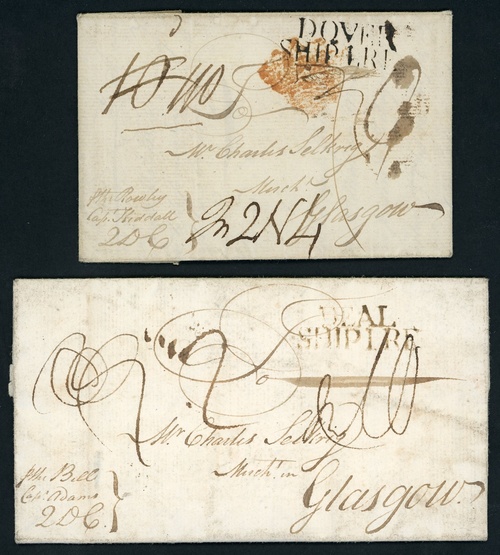 DOVER
SHIP LRE
To
Mr. Charles Selkrig
Mercht.
Glasgow
Pr the Rowley
Capt. Kiddall
2 D C
In 2N4
DEAL
SHIP LRE
To
Mr Charles Selkrig
Mercht. in
Glasgow.
Pr the Bell
Capt. Adams
2 D C.